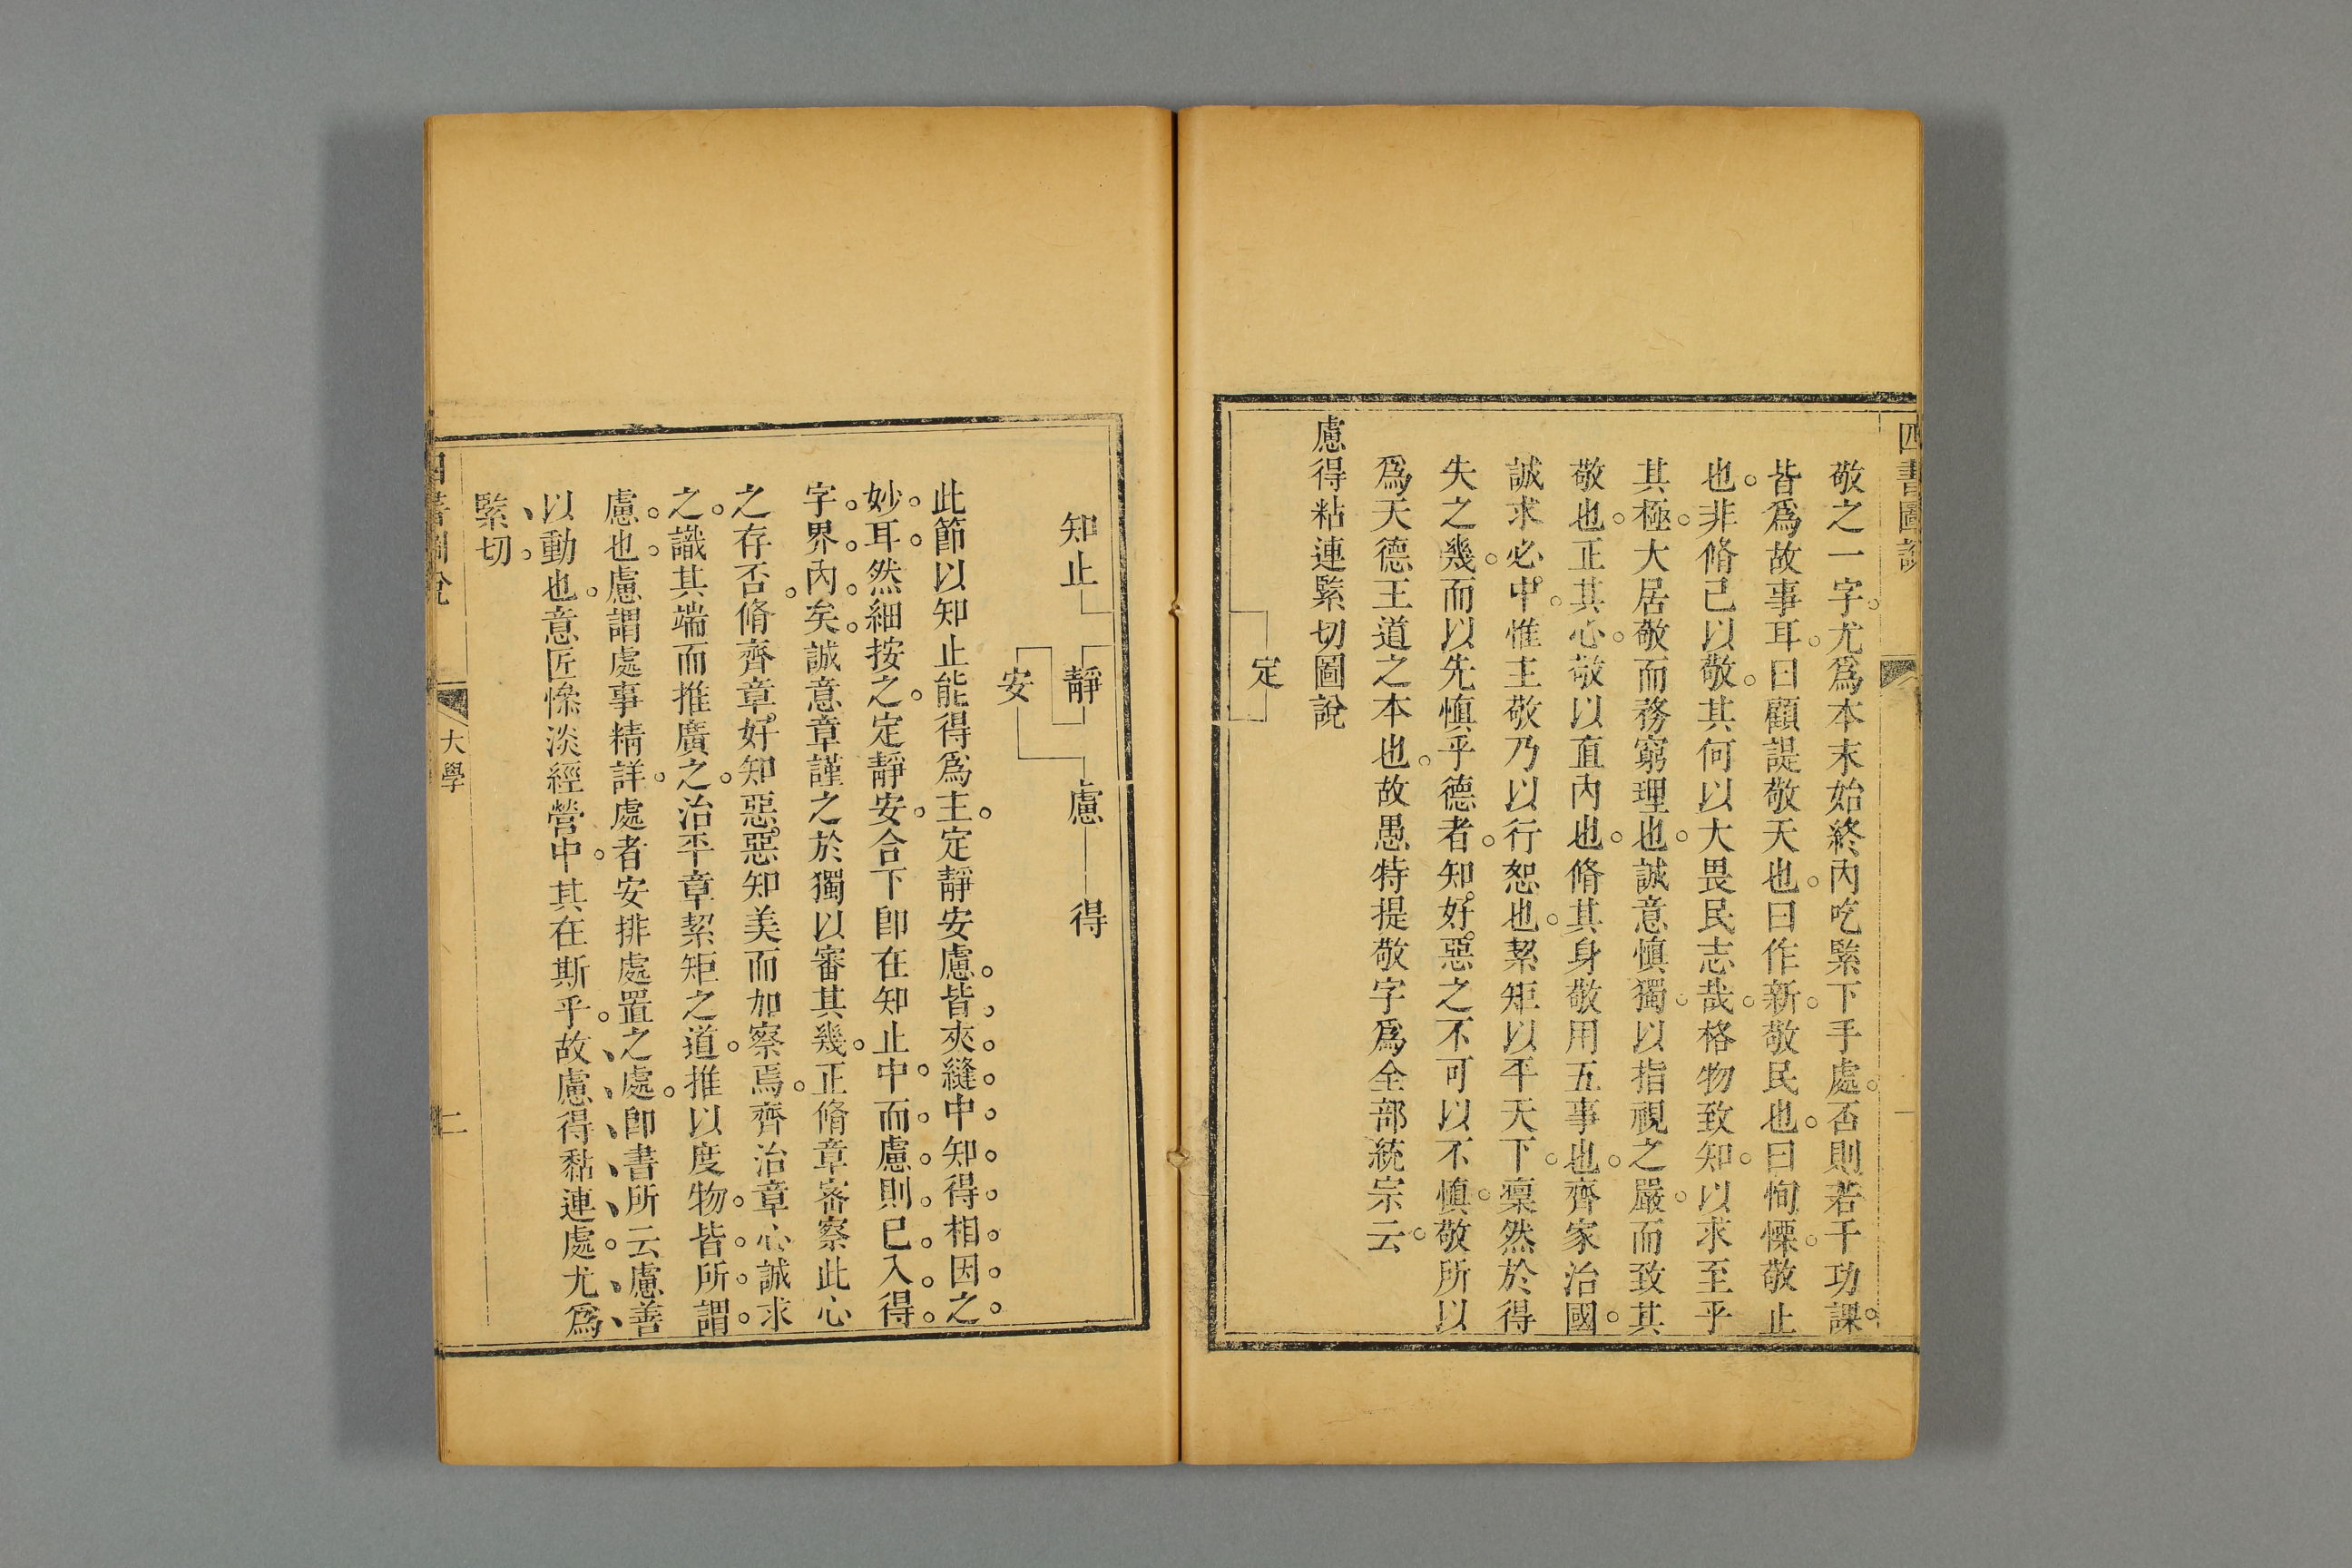 四書圖說
一
敬之一字。尤爲本末始終內吃緊下手處。否則若干功課。
皆爲故事耳。曰顧諟敬天也。曰作新。敬民也。曰恂慄。敬止
也。非脩己以敬。其何以大畏民志哉。格物致知。以求至乎
其極。大居敬而務窮理也。誠意慎獨。以指視之嚴。而致其
敬也。正其心。敬以直內也。脩其身敬用五事也。齊家治國。
誠求必中。惟主敬乃以行恕也。絜矩以平天下。稟然於得
失之幾。而以先慎乎德者。知好惡之不可以不慎。敬所以
爲天德王道之本也。故愚特提敬字爲全部統宗云。
慮得粘連緊切圖說
定
知止 靜 慮 得
安
此節以知止能得爲主。定靜安慮。皆夾縫中知得相因之
妙耳。然細按之。定靜安。合下卽在知止中。而慮則已入得
字界內矣。誠意章謹之於獨以審其幾。正脩章審察此心
之存否。脩齊章。好知惡。惡知美而加察焉。齊治章心誠求
之。識其端而推廣之。治平章絜矩之道。推以度物。皆所謂
慮也。慮謂處事精詳。處者安排處置之處。卽書所云慮善
以動也。意匠慘淡經營中。其在斯乎。故慮得黏連處。尤爲
緊切。
四書圖說
大學
二